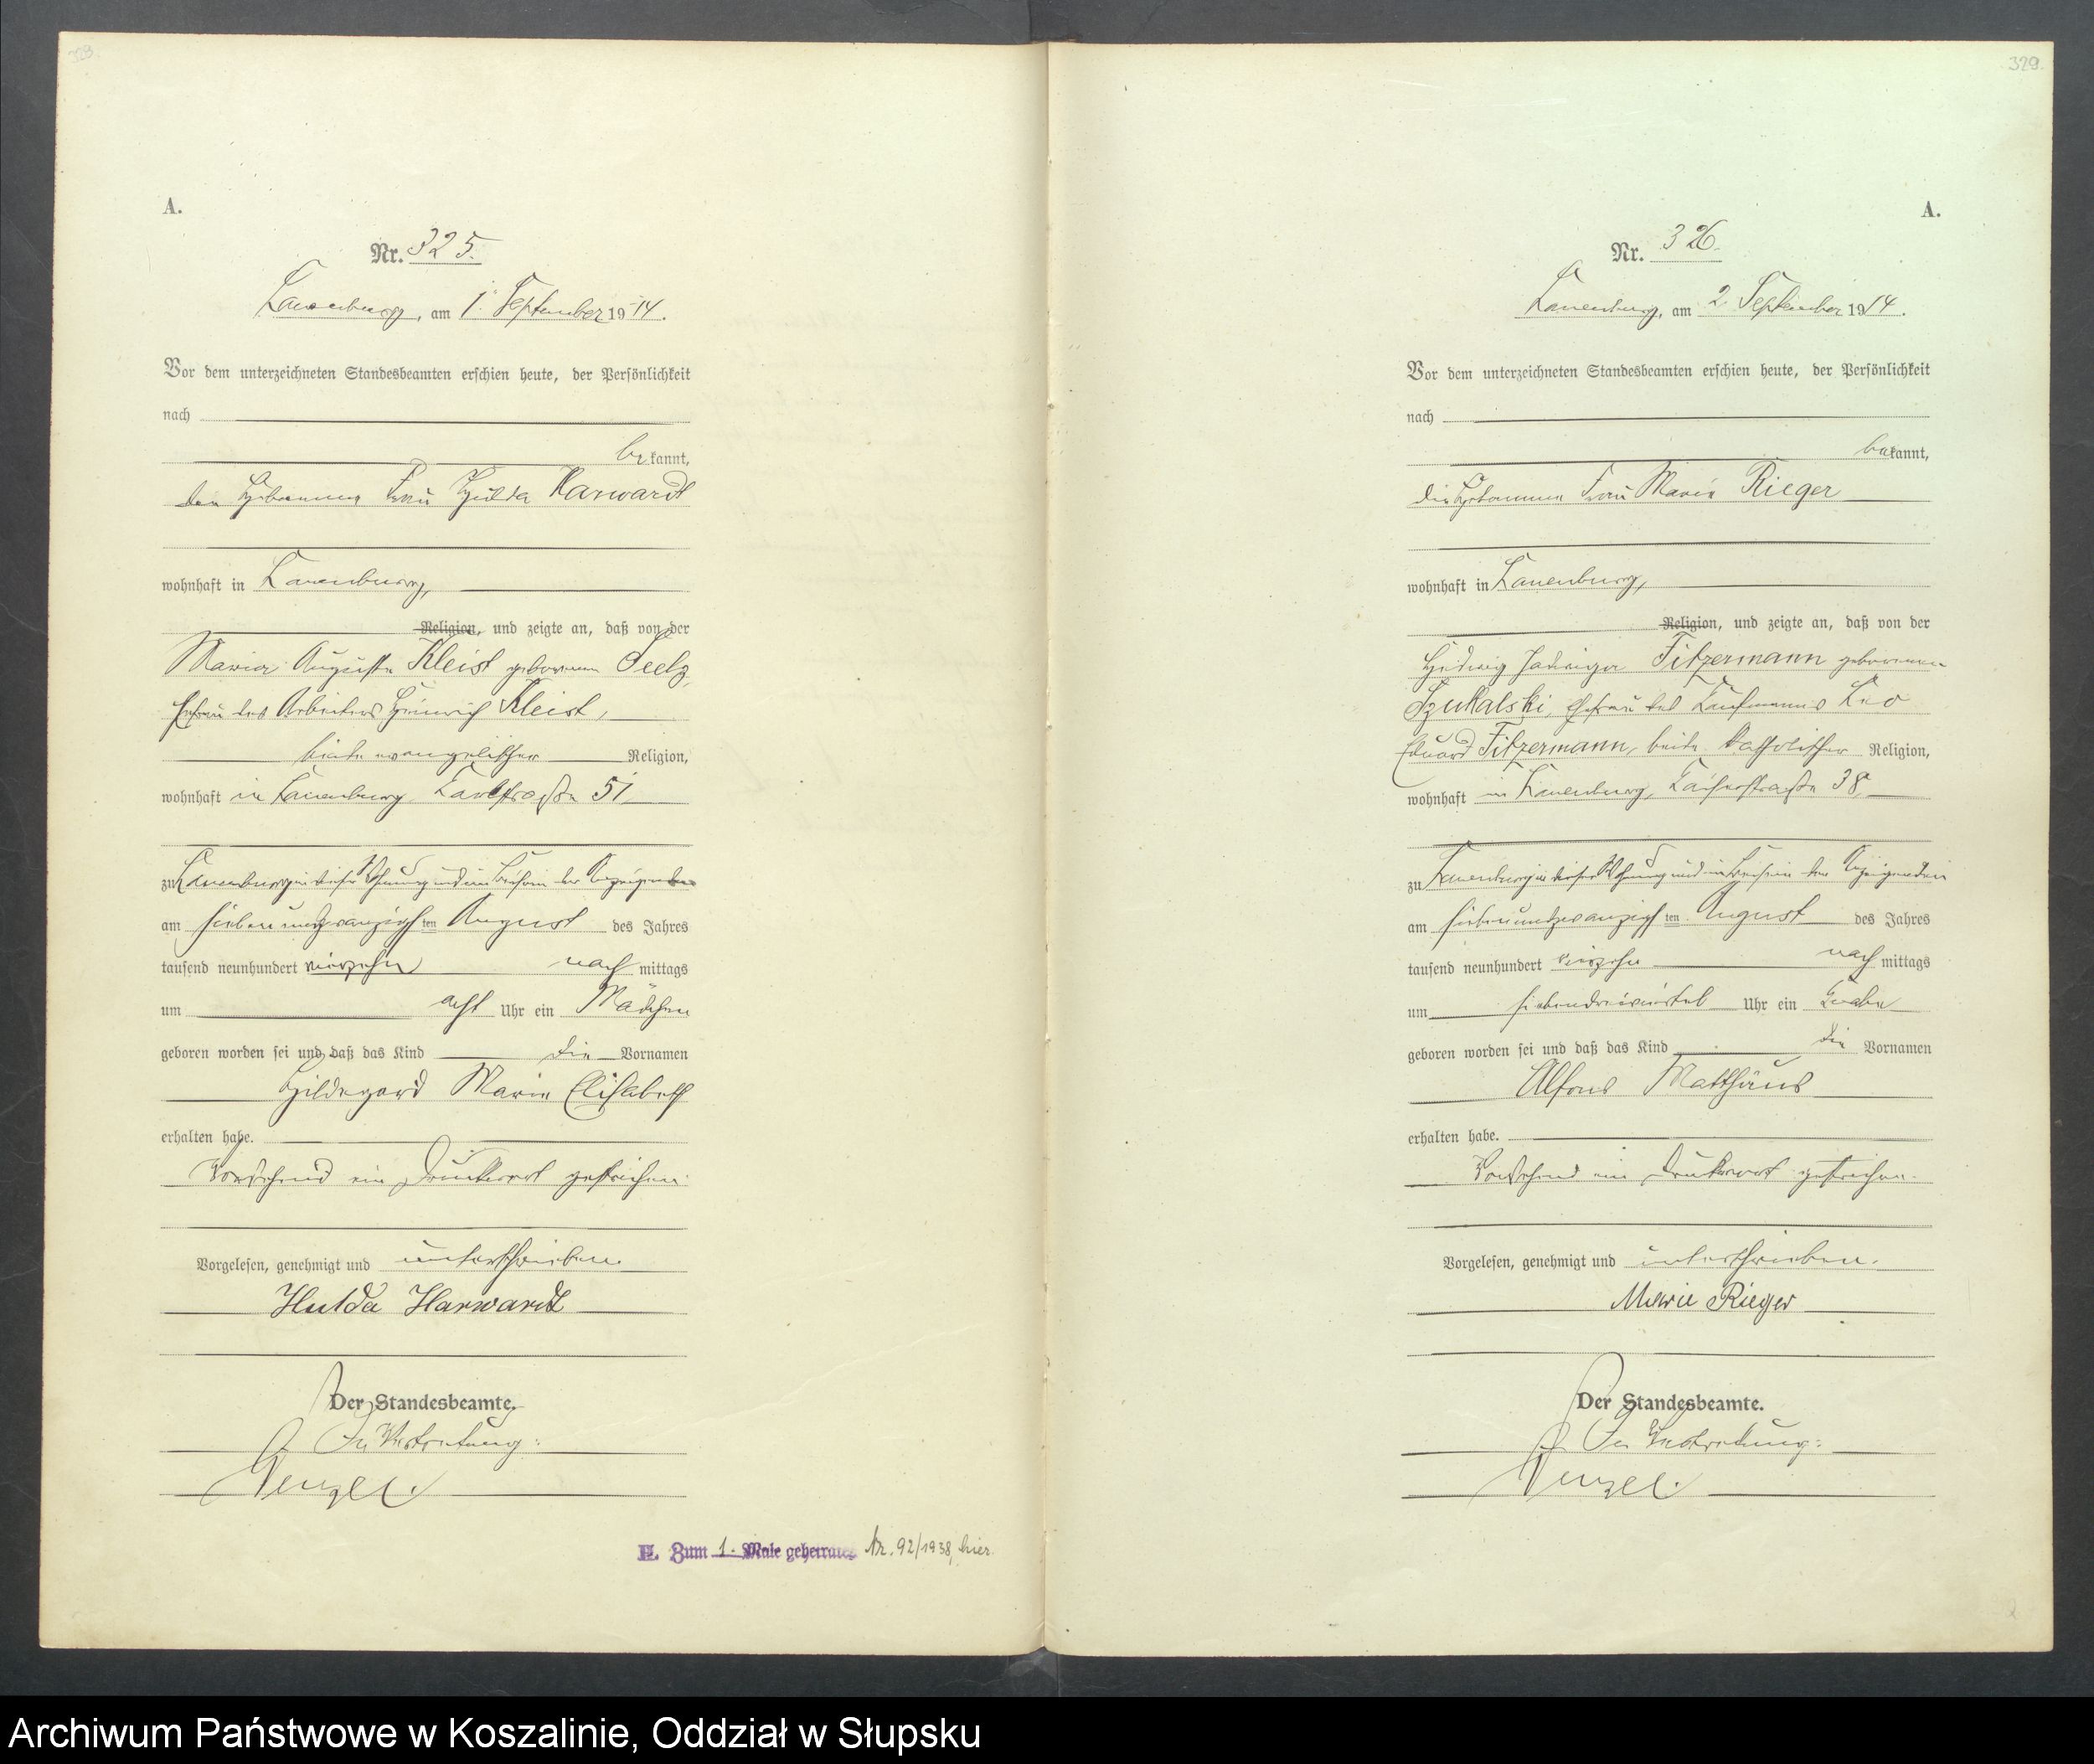 328.
A.
Nr. 325.
Lauenburg, am 1. September 1914.
Vor dem unterzeichneten Standesbeamten erschien heute, der Persönlichkeit
nach
bekannt,
die Hebamme Frau Hulda Harwardt
wohnhaft in Lauenburg,
Religion, und zeigte an, daß von der
Maria Auguste Kleist geborenen Seelg,
Ehefrau des Arbeiters Heinrich Kleist,
beide evangelischer Religion,
wohnhaft in Lauenburg, Karlstraße 51,
zu Lauenburg in dieser Wohnung und im Beisein der Anzeigenden
am siebenundzwanzigsten August des Jahres
tausend neunhundert vierzehn nachmittags
um acht Uhr ein Mädchen
geboren worden sei und daß das Kind die Vornamen
Hildegard Maria Elisabeth
erhalten habe.
Vorstehend ein Druckwort gestrichen.
Vorgelesen, genehmigt und unterschrieben.
Hulda Harwardt
Der Standesbeamte.
In Vertretung:
Wenzel.
E. Zum 1. Male geheiratet Nr. 92/1938, hier.
329.
A.
Nr. 326.
Lauenburg, am 2. September 1914.
Vor dem unterzeichneten Standesbeamten erschien heute, der Persönlichkeit
nach
bekannt,
die Hebamme Frau Marie Rieger
wohnhaft in Lauenburg,
Religion, und zeigte an, daß von der
Hedwig Jadwiga Fitzermann geborenen
Szukalski, Ehefrau des Kaufmanns Leo
Eduard Fitzermann, beide katholischer Religion,
wohnhaft in Lauenburg, Kaiserstraße 38,
zu Lauenburg in dieser Wohnung und im Beisein der Anzeigenden
am siebenundzwanzigsten August des Jahres
tausend neunhundert vierzehn nachmittags
um siebendreiviertel Uhr ein Knabe
geboren worden sei und daß das Kind die Vornamen
Alfons Matthäus
erhalten habe.
Vorstehend ein Druckwort gestrichen.
Vorgelesen, genehmigt und unterschrieben.
Marie Rieger
Der Standesbeamte.
In Vertretung:
Wenzel.
Archiwum Państwowe w Koszalinie, Oddział w Słupsku